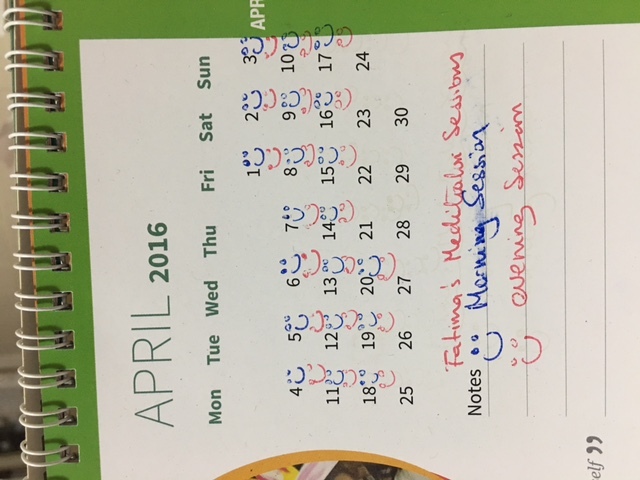 APR
APRIL 2016
Mon Tue Wed Thu Fri Sat Sun
1 2 3
4 5 6 7 8 9 10
11 12 13 14 15 16 17
18 19 20 21 22 23 24
25 26 27 28 29 30
Fatima's Meditation Sessions
Notes Morning Session
evening Session
elf ”